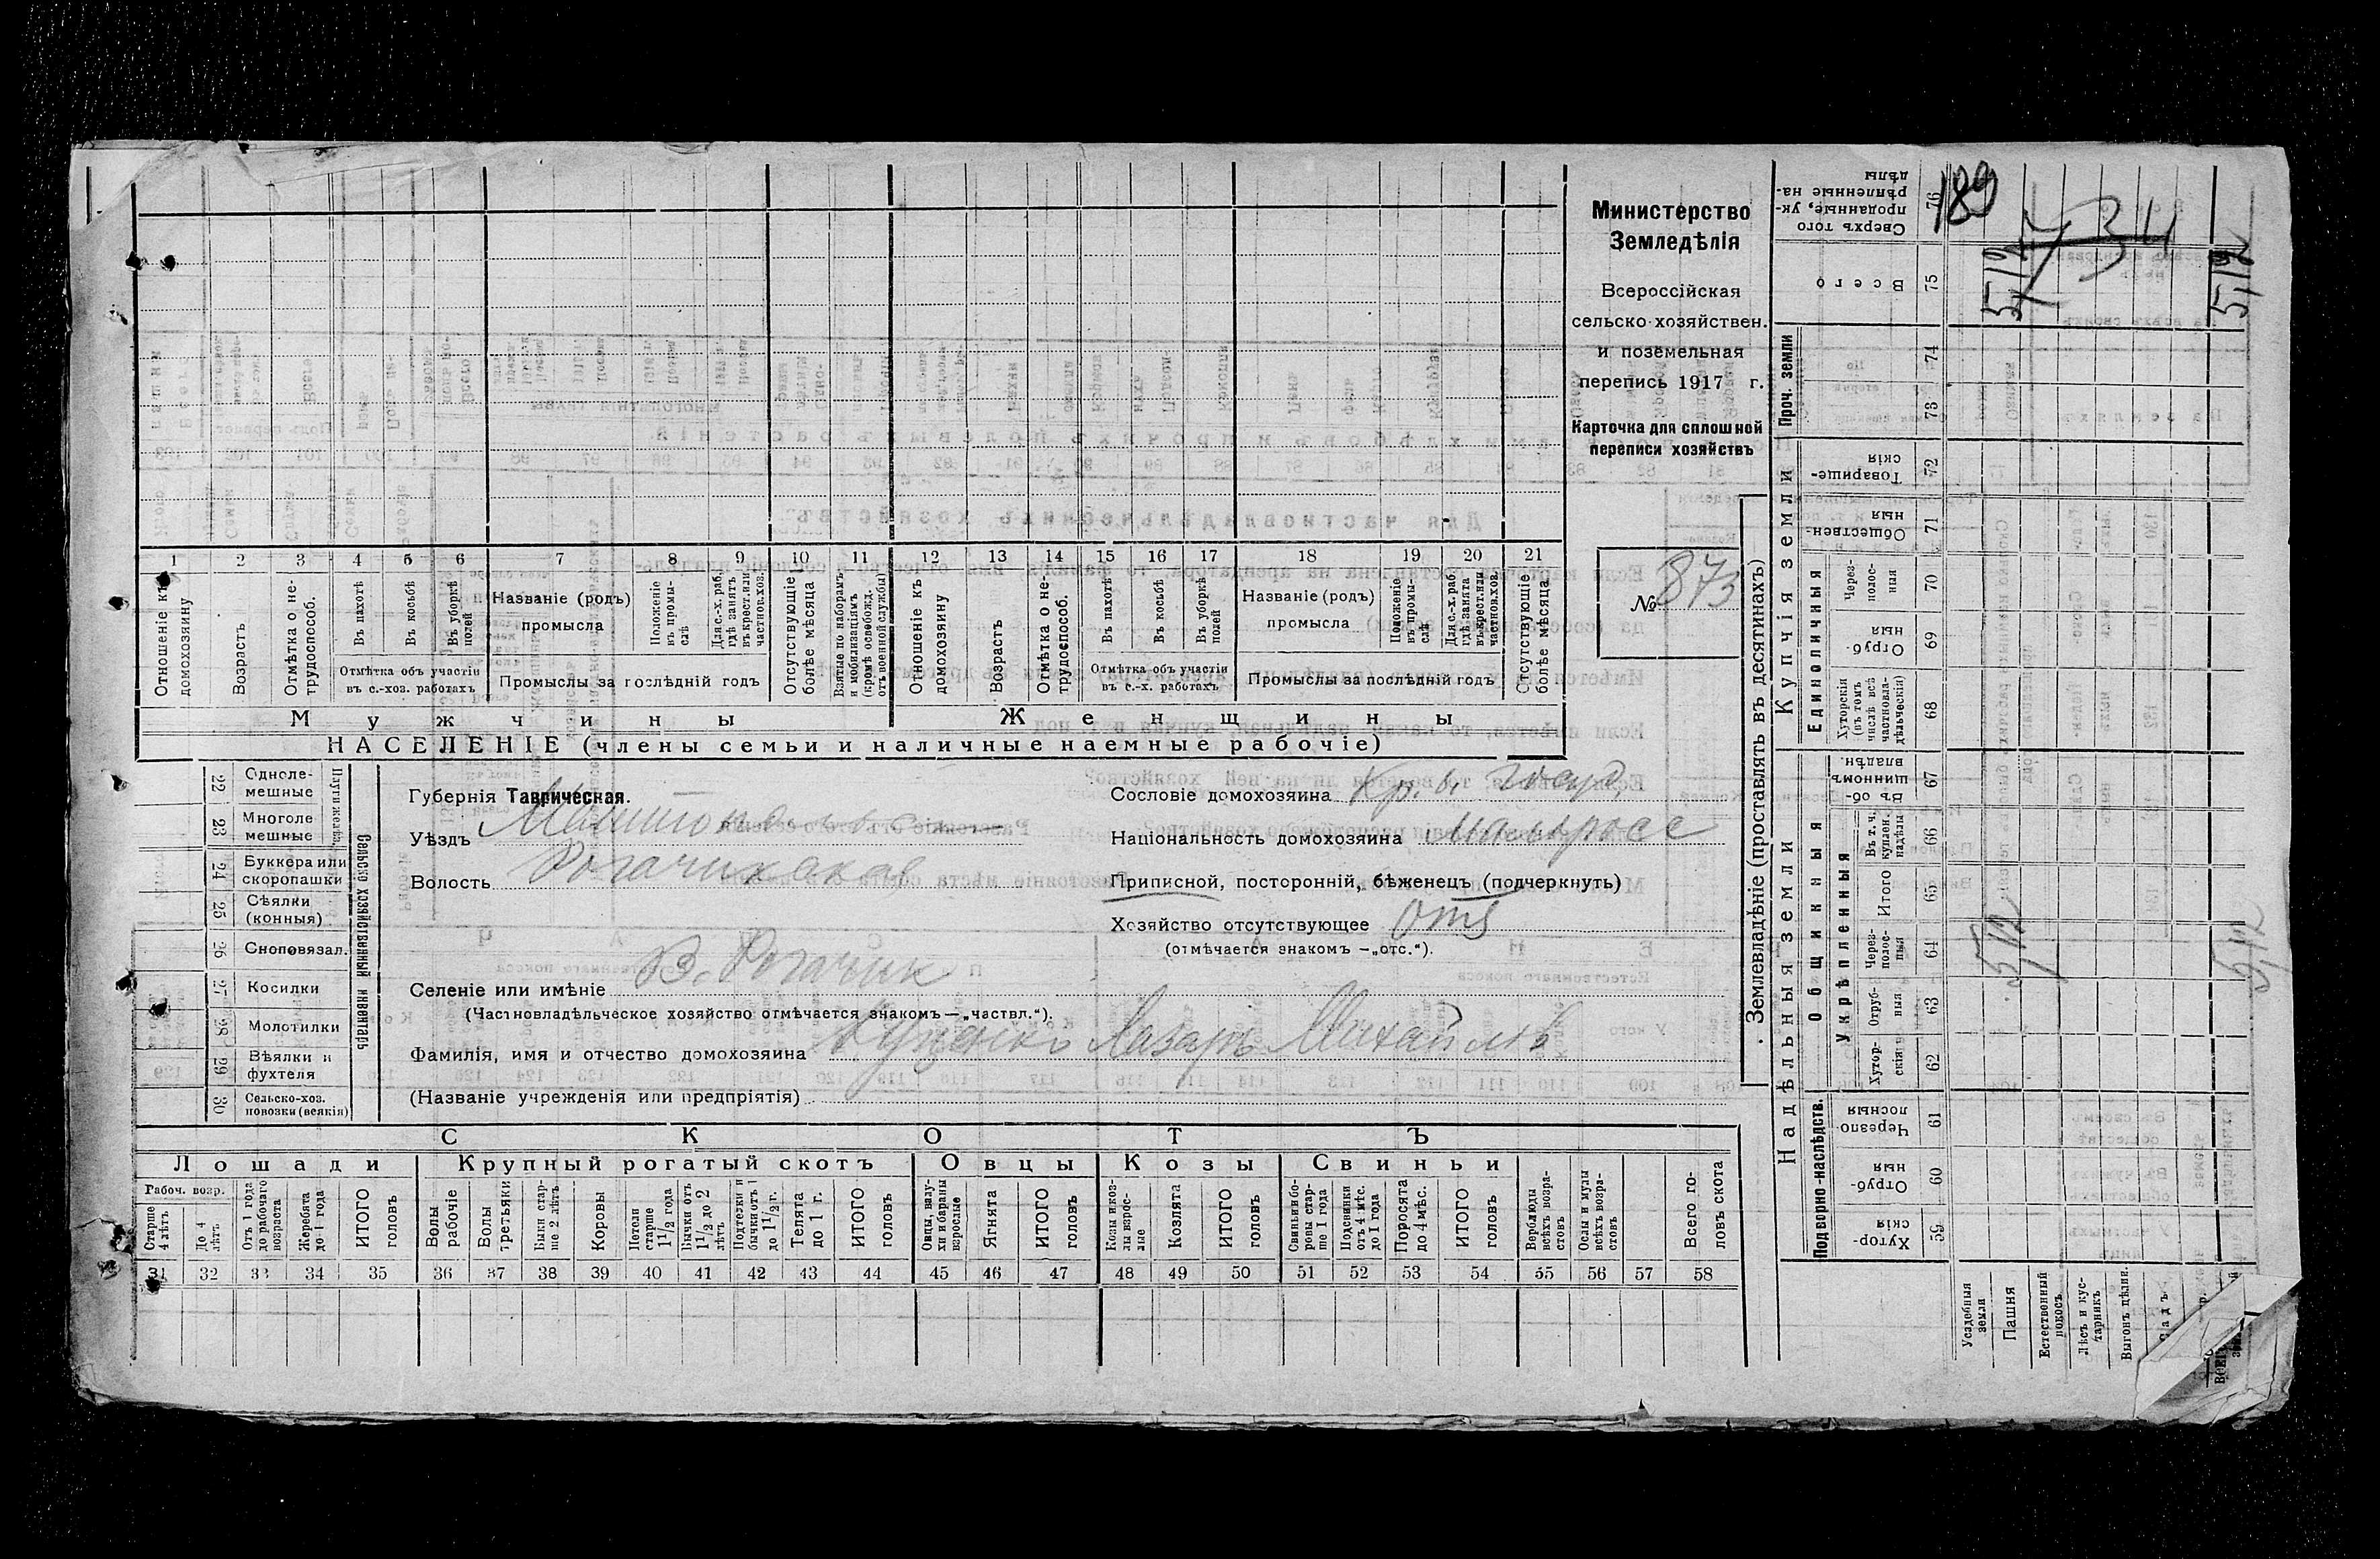 Министерство
Земледѣлія
Всероссійская
сельско-хозяйствен.
и поземельная
перепись 1917 г.
Карточка для сплошной
переписи хозяйствъ
№ 873
1 2 3 4 5 6 7 8 9 10 11 12 13 14 15 16 17 18 19 20 21
Отношеніе къ домохозяину
Возрастъ
Отмѣтка о не-трудоспособ.
Въ пахотѣ
Въ косьбѣ
Въ уборкѣ полей
Отмѣтка объ участіи
въ с.-хоз. работахъ
Названіе (родъ)
промысла
Положеніе въ промы-слѣ
Для с.-х. раб, гдѣ занятъ въ крест. или частнов. хоз.
Промыслы за послѣдній годъ
Отсутствующіе болѣе мѣсяца
Взятые по наборамъ и мобилизаціямъ (кромѣ освобожд. отъ военной службы)
Отношеніе къ домохозяину
Возрастъ
Отмѣтка о не-трудоспособ.
Въ пахотѣ
Въ косьбѣ
Въ уборкѣ полей
Отмѣтка объ участіи
въ с.-х. работахъ
Названіе (родъ)
промысла
Положеніе въ промы-слѣ
Для с.-х. раб. гдѣ занята въ крест. или частнов. хоз.
Промыслы за послѣдній годъ
Отсутствующіе болѣе мѣсяца
Мужчины Женщины
НАСЕЛЕНІЕ (члены семьи и наличные наемные рабочіе)
Сельско хозяйственный инвентарь
22 Одноле-мешные
23 Многоле мешные
24 Буккера или скоропашки
25 Сѣялки (конныя)
26 Сноповязал.
27 Косилки
28 Молотилки
29 Вѣялки и фухтеля
30 Сельско-хоз. повозки (всякія)
Губернія Таврическая.
Уѣздъ
Волость
Сословіе домохозяина Кр. б. госуд.
Національность домохозяина Малоросс
Приписной, посторонній, бѣженецъ (подчеркнуть)
Хозяйство отсутствующее Отс
(отмѣчается знакомъ —„отс.“).
Селеніе или имѣніе В. Рогачик
(Частновладѣльческое хозяйство отмѣчается знакомъ—„частвл.“).
Фамилія, имя и отчество домохозяина Лазарь Михайлъ
(Названіе учрежденія или предпріятія)
СКОТЪ
Лошади Крупный рогатый скотъ Овцы Козы Свиньи
Рабоч. возр.
Старше 4 лѣтъ
До 4 лѣтъ
Отъ 1 года до рабочаго возраста
Жеребята до 1 года
ИТОГО головъ
Волы рабочіе
Волы третьяки
Быки стар-ше 2 лѣтъ
Коровы
Нетели старше 1 1/2 года
Бычки отъ 1 1/2 до 2 лѣтъ
Подтелки и бычки отъ 1 до 1 1/2 г.
Телята до 1 г.
ИТОГО головъ
Овцы, валу-хи и бараны взрослые
Ягнята
ИТОГО головъ
Козы и коз-лы взрос-лые
Козлята
ИТОГО головъ
Свиньи и бо-ровы стар-ше 1 года
Подсвинки отъ 4 мѣс. до 1 года
Поросята до 4 мѣс.
ИТОГО головъ
Верблюды всѣхъ возра-стовъ
Ослы и мулы всѣхъ возра-стовъ
Всего го-ловъ скота
31 32 33 34 35 36 37 38 39 40 41 42 43 44 45 46 47 48 49 50 51 52 53 54 55 56 57 58
Землевладѣніе (проставлять въ десятинахъ)
Надѣльныя земли
Купчія земли
Проч. земли
Подворно-наслѣдств.
Общинныя
Укрѣпленныя
Единоличныя
Хутор-скія 59
Отруб-ныя 60
Черезпо-лосныя 61
Хутор-скія 62
Отруб-ныя 63
Через-полос-ныя 64 5,12 5,12
Итого 65
Въ т. ч. куплен. надѣлы 66
Въ об-щинномъ владѣн. 67
Хуторскія (въ томъ числѣ всѣ частновла-дѣльческія) 68
Отруб-ныя 69
Через-полос-ныя 70
Обществен-ныя 71
Товарище-скія 72
73
74
Всего 75 5,12 5,12
Сверхъ того проданные, ук-рѣпленные на-дѣлы 76
189
34
Усадебныя земли
Пашня
Естественный покосъ
Лѣсъ и кус-тарникъ
Выгонъ дѣлин.
Садъ